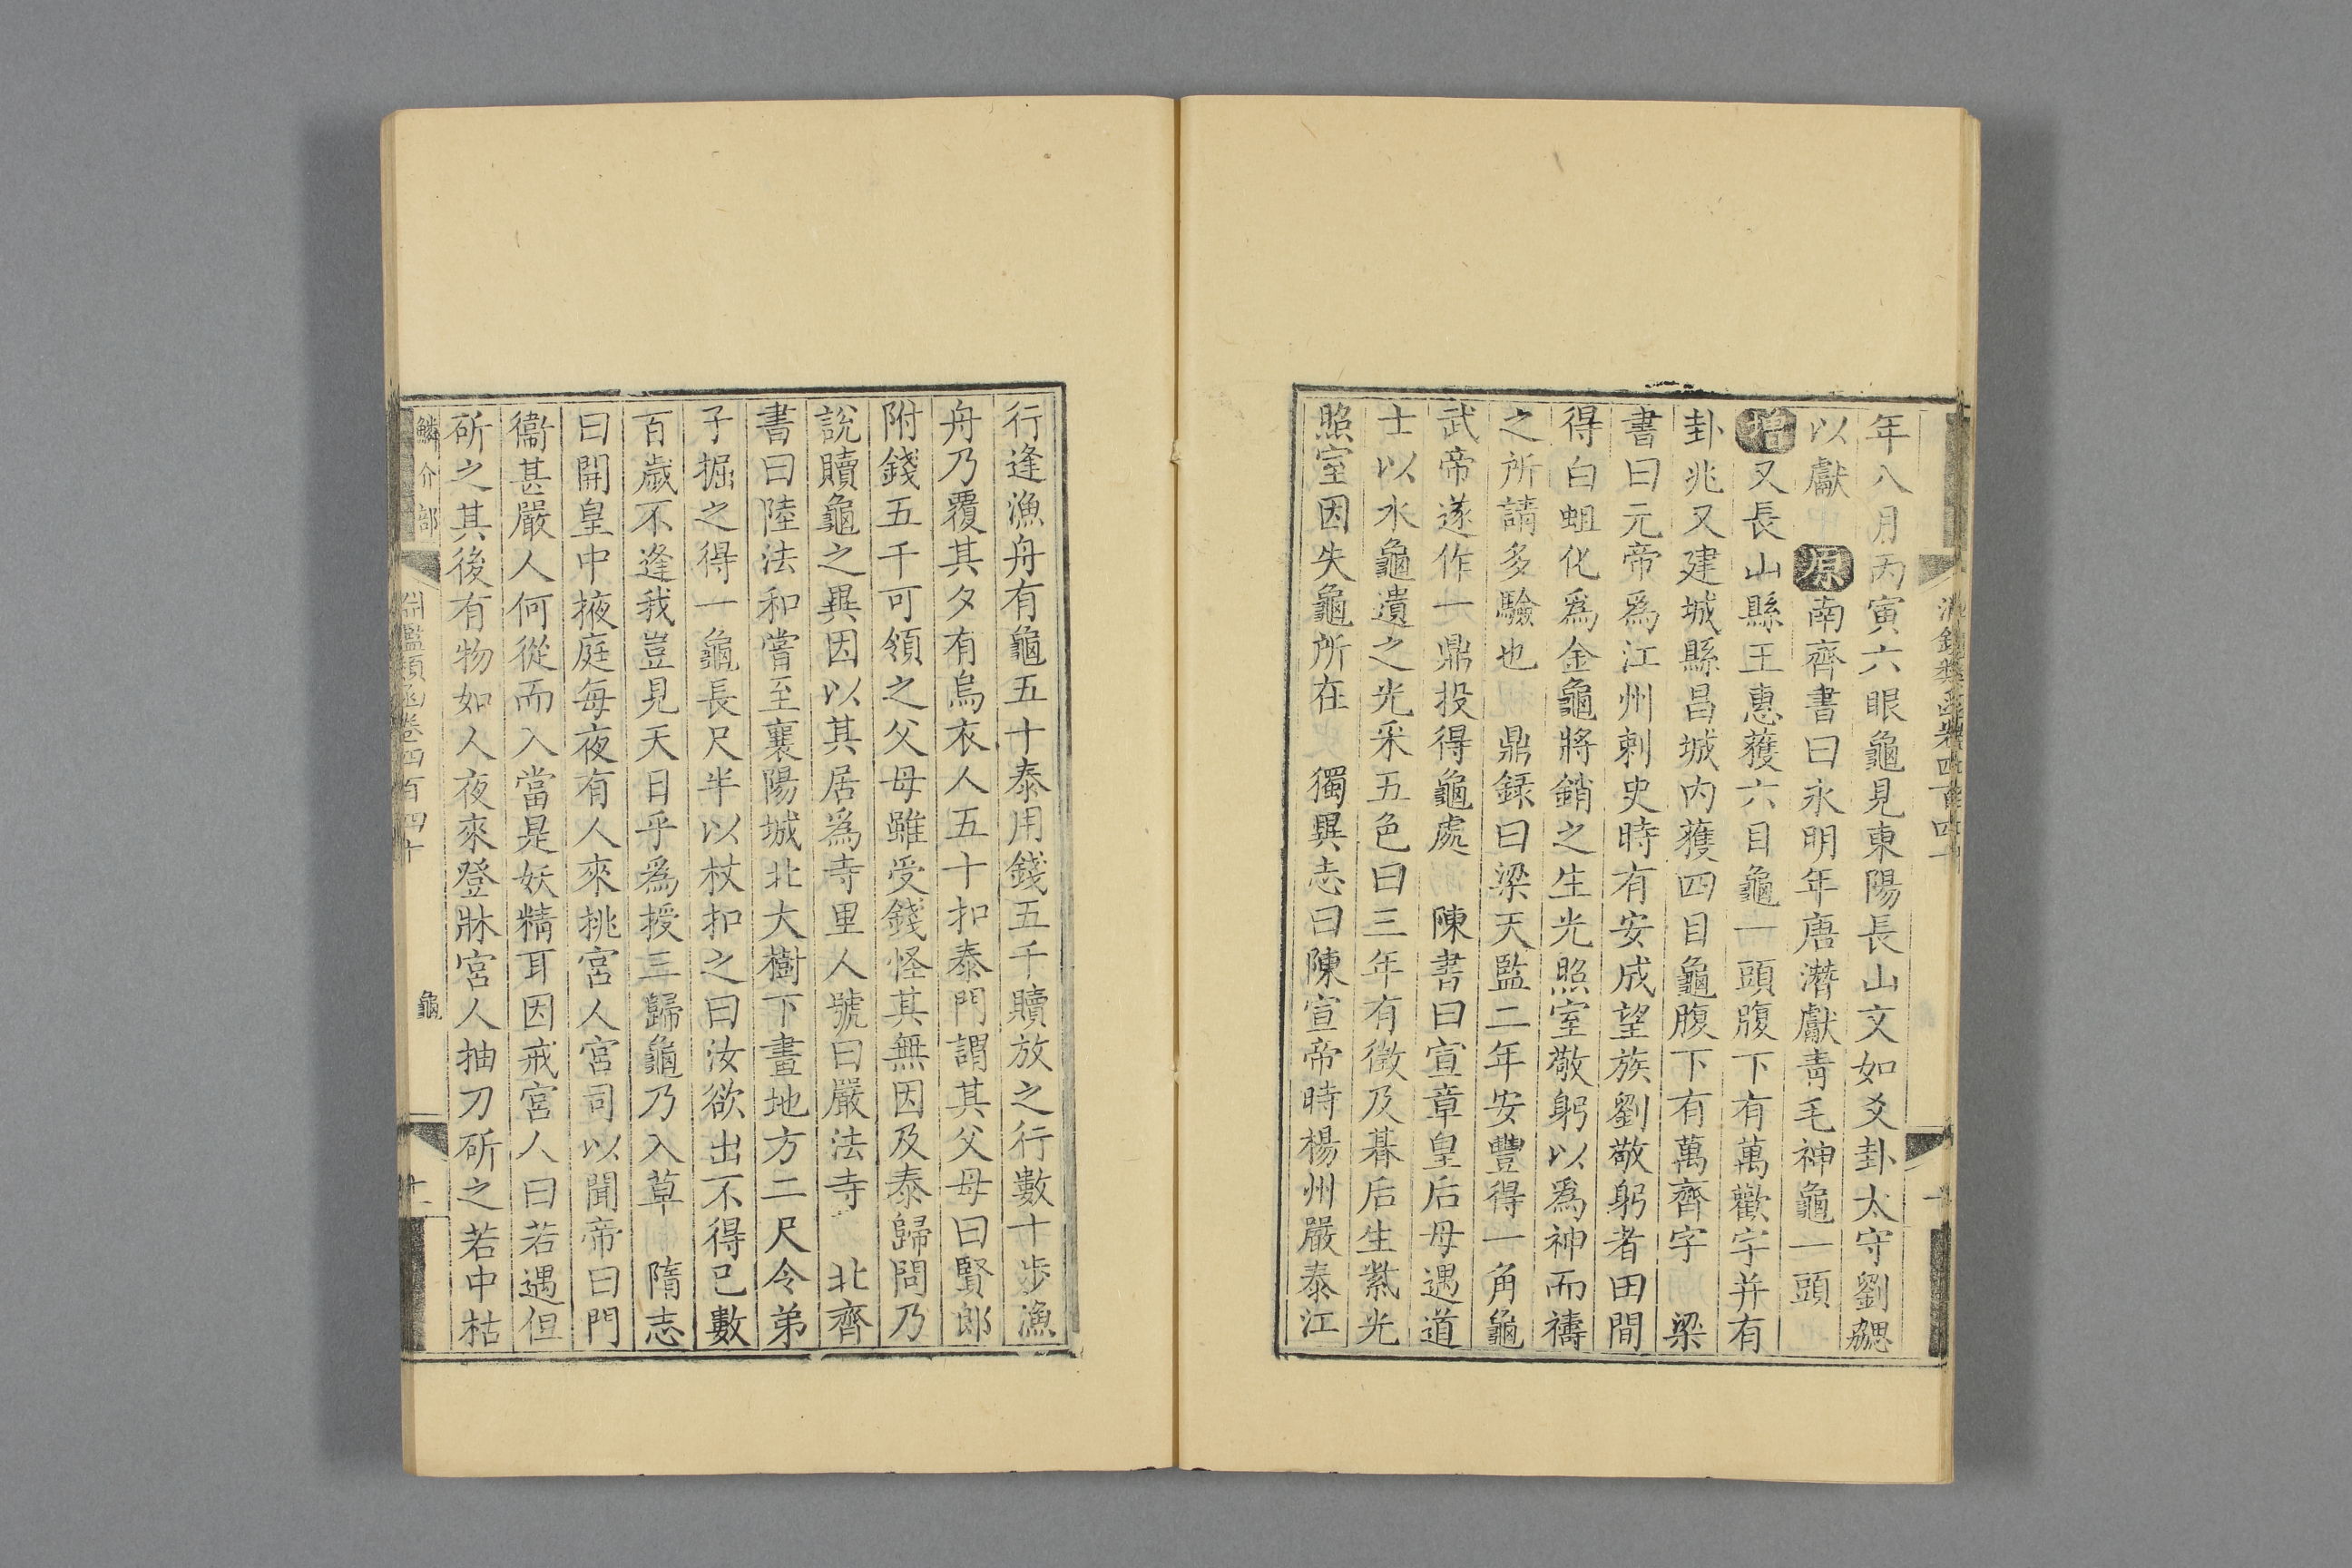 年八月丙寅六眼龜見東陽長山文如爻卦太守劉勰
以獻　原南齊書曰永明年唐潛獻青毛神龜一頭
增又長山縣王惠獲六目龜一頭腹下有萬歡字并有
卦兆又建城縣昌城內獲四目龜腹下有萬齊字　梁
書曰元帝爲江州刺史時有安成望族劉敬躬者田間
得白蛆化爲金龜將銷之生光照室敬躬以爲神而禱
之所請多驗也　鼎録曰梁天監二年安豐得一角龜
武帝遂作一鼎投得龜處　陳書曰宣章皇后母遇道
士以水龜遺之光采五色曰三年有徵及朞后生紫光
照室因失龜所在　獨異志曰陳宣帝時楊州嚴泰江
行逢漁舟有龜五十泰用錢五千贖放之行數十步漁
舟乃覆其夕有烏衣人五十扣泰門謂其父母曰賢郎
附錢五千可領之父母雖受錢怪其無因及泰歸問乃
說贖龜之異因以其居爲寺里人號曰嚴法寺　北齊
書曰陸法和嘗至襄陽城北大樹下畫地方二尺令弟
子掘之得一龜長尺半以杖扣之曰汝欲出不得已數
百歲不逢我豈見天日乎爲授三歸龜乃入草　隋志
曰開皇中掖庭每夜有人來挑宮人宮司以聞帝曰門
衞甚嚴人何從而入當是妖精耳因戒宮人曰若遇但
斫之其後有物如人夜來登牀宮人抽刀斫之若中枯
鱗介部　淵鑑類函卷四百四十　龜　十一